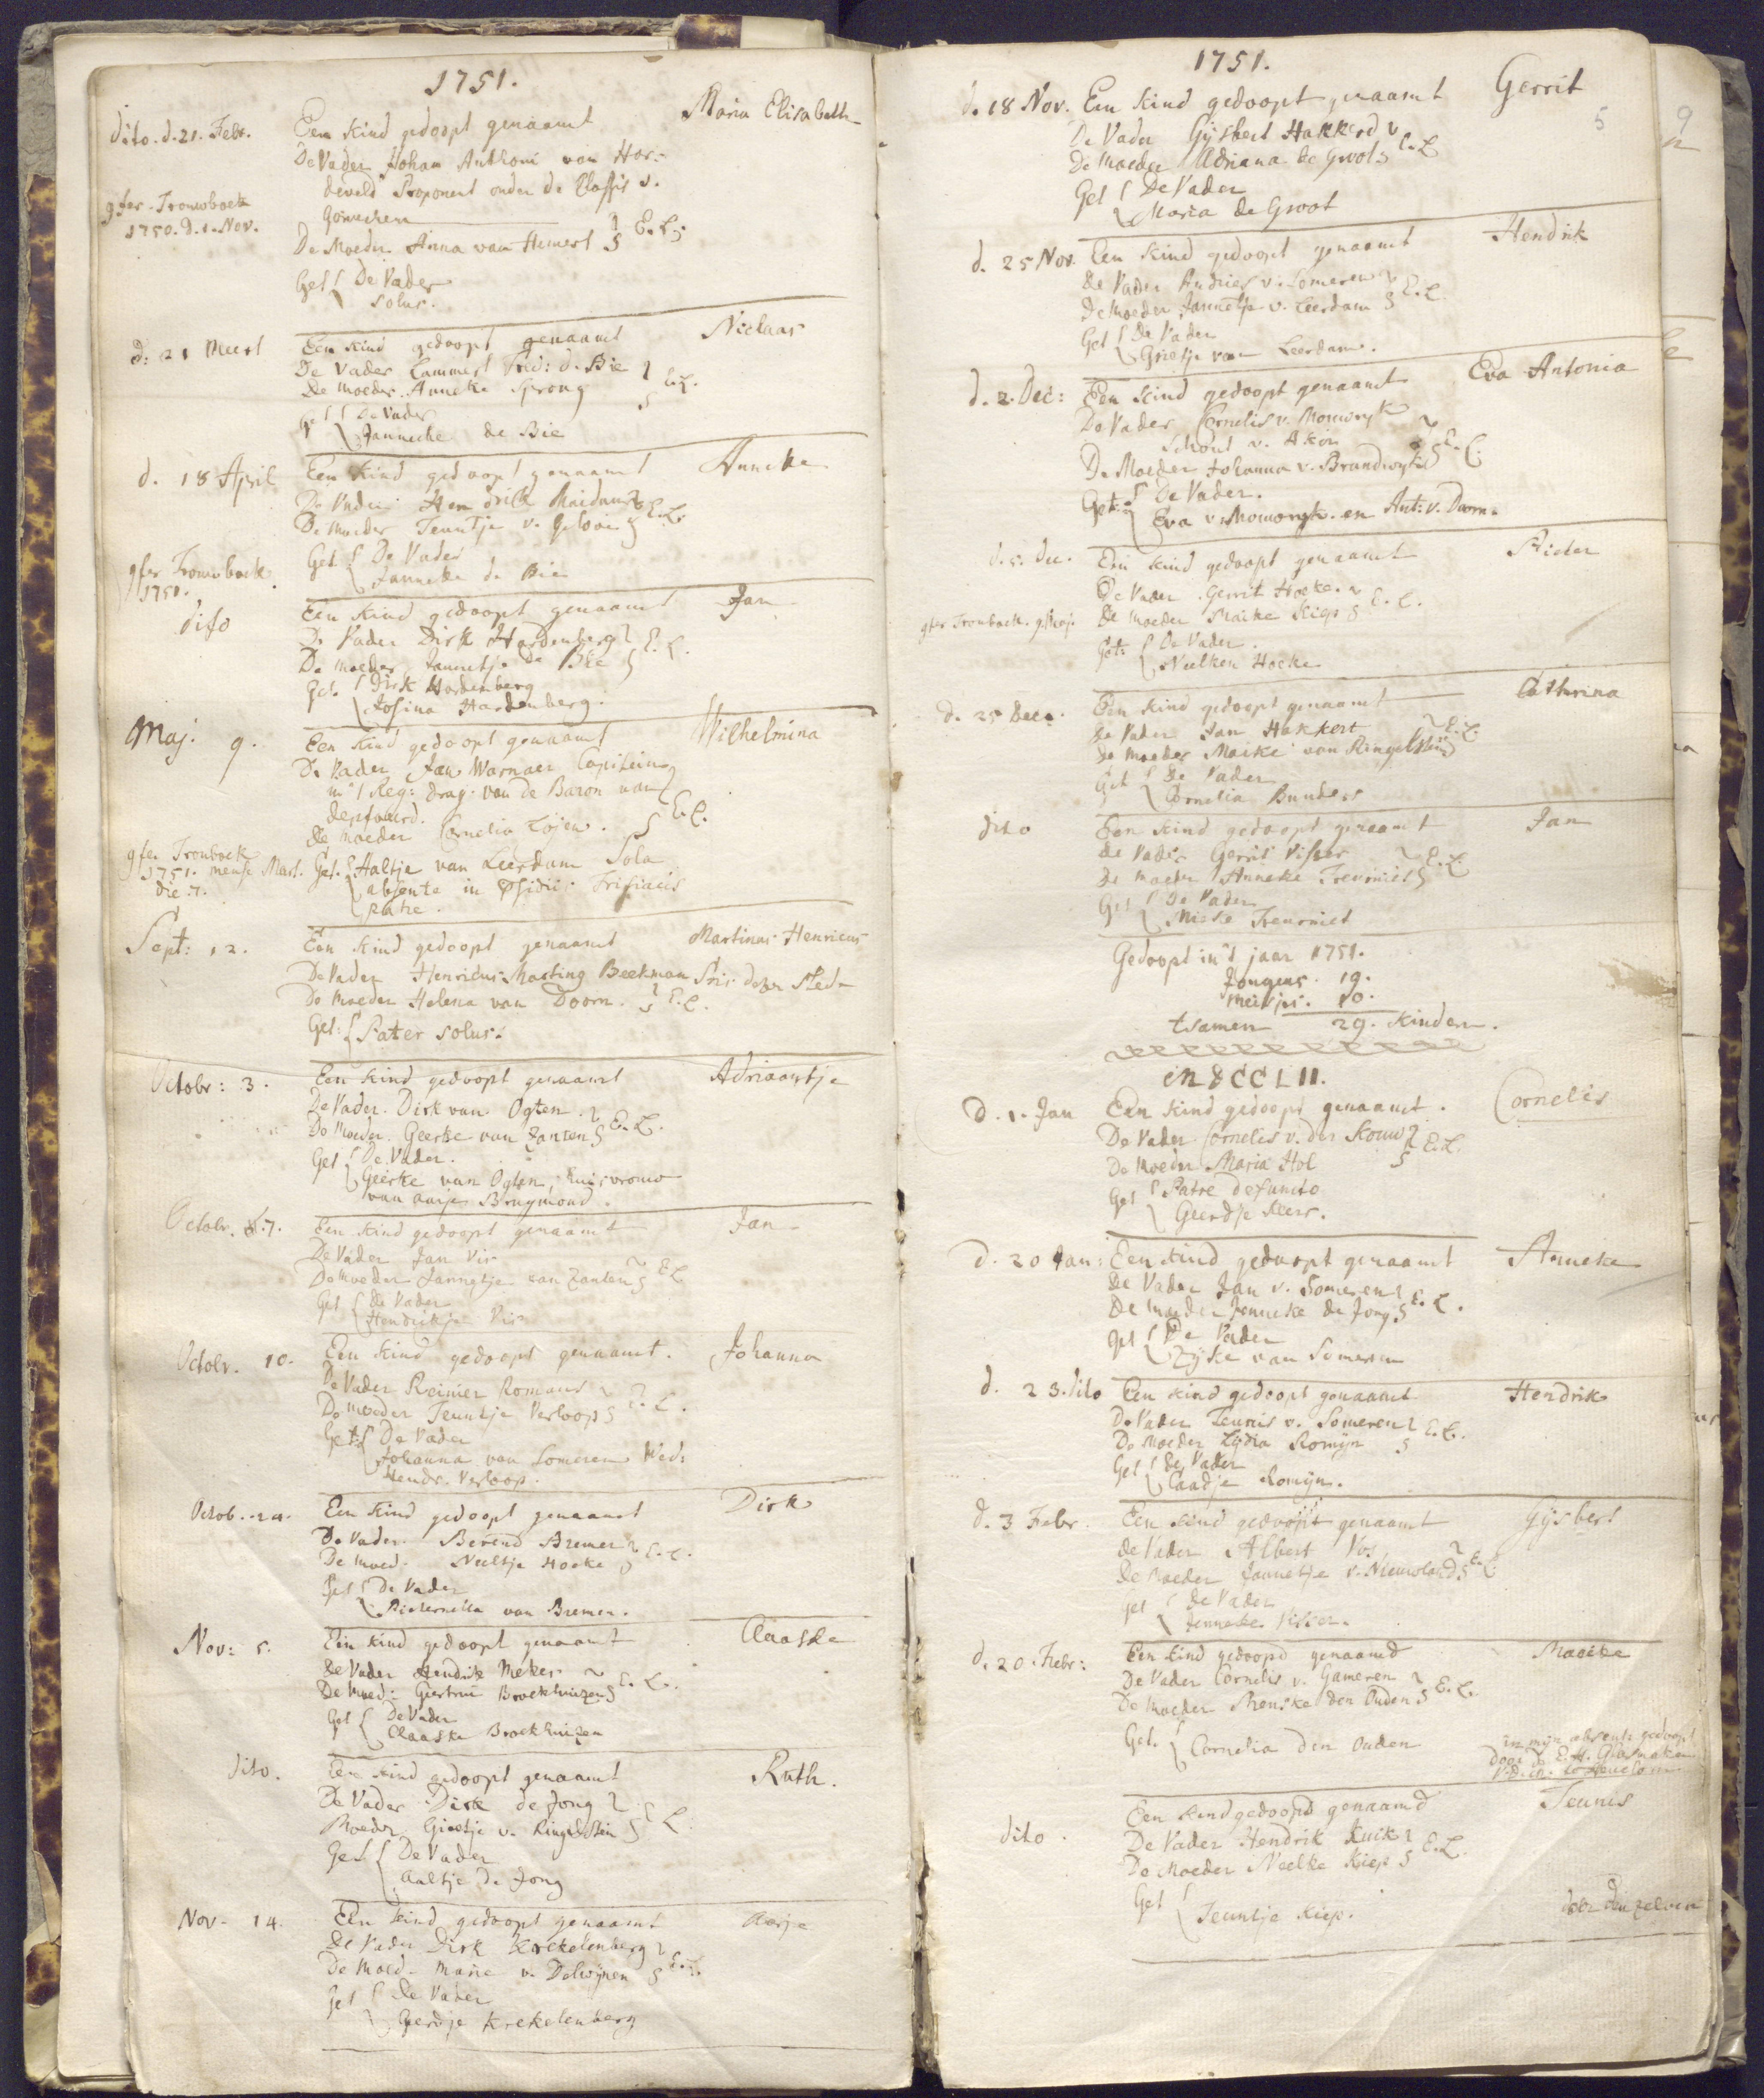 1751.
dito. d. 21. Febr. Een kind gedoopt genaamt Maria Elisabeth
De Vader Johan Anthoni van Har-
develd Proponent onder de Classis v.
gfer. Trouwboek Gorinchem
1750. d. 1. Nov.
De Moeder Anna van Hemert E. L.
Get De Vader
solus.
d: 21 Meert Een kind gedoopt genaamt Niclaas
De Vader Lammert Fred: d. Bie
De moeder. Anneke Sprong E. L.
Get De Vader
Jannecke de Bie
d. 18 April Een kind gedoopt genaamt Anneke
De Vader Hendrik
De Moeder Teuntje v. E. L.
Get De Vader
Janneke de Bie
gfer Trouwboek
1750.
dito Een kind gedoopt genaamt Jan
De Vader Dirk Hardenberg E. L.
De moeder Jannetje de Bie
Get. Dirk Hardenberg
Josina Hardenberg.
Maj. 9. Een kind gedoopt genaamt Wilhelmina
De Vader Jan Warnaer Capitein
in 't Reg: drag. van de Baron van
De moeder Cornelia E. L.
gfer Trouboek
1751. mense Mart. Get. Haltje van Leerdam Sola
die 7. absente in Frisiacis
patre.
Sept: 12. Een kind gedoopt genaamt Martinus Henricus
De Vader Henricus Marting Beekman deser stede
De moeder Helena van Doorn. E. L.
Get: Pater solus.
Octobr: 3. Een kind gedoopt genaamt Adriaantje
De Vader. Dirk van Ogten.
De Moeder. Geerke van Zanten E. L.
Get De Vader.
Geerke van Ogten, huisvrouw
van aarje Bruymond.
Octobr. 7. Een kind gedoopt genaamt Jan
De Vader Jan Vis
De moeder Jannetje van Zanten E L
Get De Vader
Hendrikje Vis
Octobr. 10. Een kind gedoopt genaamt. Johanna
De Vader Reinier Romans
De moeder Teuntje Verloop E. L.
Get: De Vader
Johanna van Someren Wed:
Hendr. Verloop.
Octob. 24. Een kind gedoopt genaamt Dirk
De Vader. Berend Bremer
De moed. Neeltje Hoeke E. L.
Get De Vader
Pieternella van Bremen.
Nov: 5. Een kind gedoopt genaamt Claaske
De Vader Hendrik Meker
De Moed: Geertrui Broekhuizen E. L.
Get De Vader
Claaske Broekhuizen
dito. Een kind gedoopt genaamt Ruth.
De Vader Dirk de Jong
Moeder Grietje v. Ringelstein E L
Get De Vader
Aaltje de Jong
Nov. 14. Een kind gedoopt genaamt Aarje
De Vader Dirk Krekelenberg
De Moed. Marie v. Delwijnen E. L.
Get De Vader
Gerdje Krekelenberg
1751.
d. 18 Nov. Een kind gedoopt genaamt Gerrit
5
De Vader Gijsbert Hakkerd
De moeder Adriana de Groot E. L
Get De Vader
Maria de Groot
d. 25 Nov. Een kind gedoopt genaamt Hendrik
De Vader Andries v. Someren
De moeder Jannetje v. Leerdam E. L
Get De Vader
Grietje van Leerdam.
d. 2. Dec: Een kind gedoopt genaamt Eva Antonia
De Vader Cornelis v. Mouwryk
Schout v. Akoi
De Moeder Johanna v. Brandwyk E. L.
Get: De Vader.
Eva v. Mouwryk. en Ant: v. Duorn.
d. 5. Dec. Een kind gedoopt genaamt Pieter
De Vader. Gerrit Hoeke.
gfer Trouboek. 9. Maj. De moeder Maike Kiep E. L.
Get: De Vader.
Neelken Hoeke
d. 25 Dec. Een kind gedoopt genaamt Cathrina
De Vader Jan Hakkert
De moeder Maike van Ringelstein E. L.
Get De Vader
Cornelia Bunders
dito Een kind gedoopt genaamt Jan
De Vader Gerrit Visser
De moeder Anneke Treurniet E. L.
Get De Vader
Mieke Treurniet
Gedoopt in 't jaar 1751.
Jongens. 19.
meisjes. 10.
tsamen 29. kinder.
MDCCLII.
d. 1. Jan Een kind gedoopt genaamt. Cornelis
De Vader Cornelis v. der Kouw
De Moeder Maria Hol E. L.
Get Patre defuncto
Geerdje Keer.
d. 20 Jan: Een kind gedoopt genaamt Anneke
De Vader Jan v. Someren
De moeder Jenneke de Jong E. L.
Get De Vader
Zyke van Someren
d. 23. dito Een kind gedoopt genaamt Hendrik
De Vader Teunis v. Someren
De Moeder Lydia Romijn E. L.
Get De Vader
Caadje Romijn.
d. 3 Febr Een kind gedoopt genaamt Gijsbert
De Vader Albert Vos
De Moeder Jannetje v. Nieuwland E. L.
Get De Vader
Jenneke Visser.
d. 20. Febr: Een kind gedoopd genaamd Maaike
De Vader Cornelis v. Gameren
De Moeder Menske den Ouden E. L.
Get. Cornelia den Ouden in mijn absentie gedoopt
door D. E. H. Glasmaker
V. D. M. te Heukelom
dito. Een kind gedoopd genaamd Teunis
De Vader Hendrik Kuik
De Moeder Neelke Kiep E. L.
Get Teuntje Kiep. door denzelven